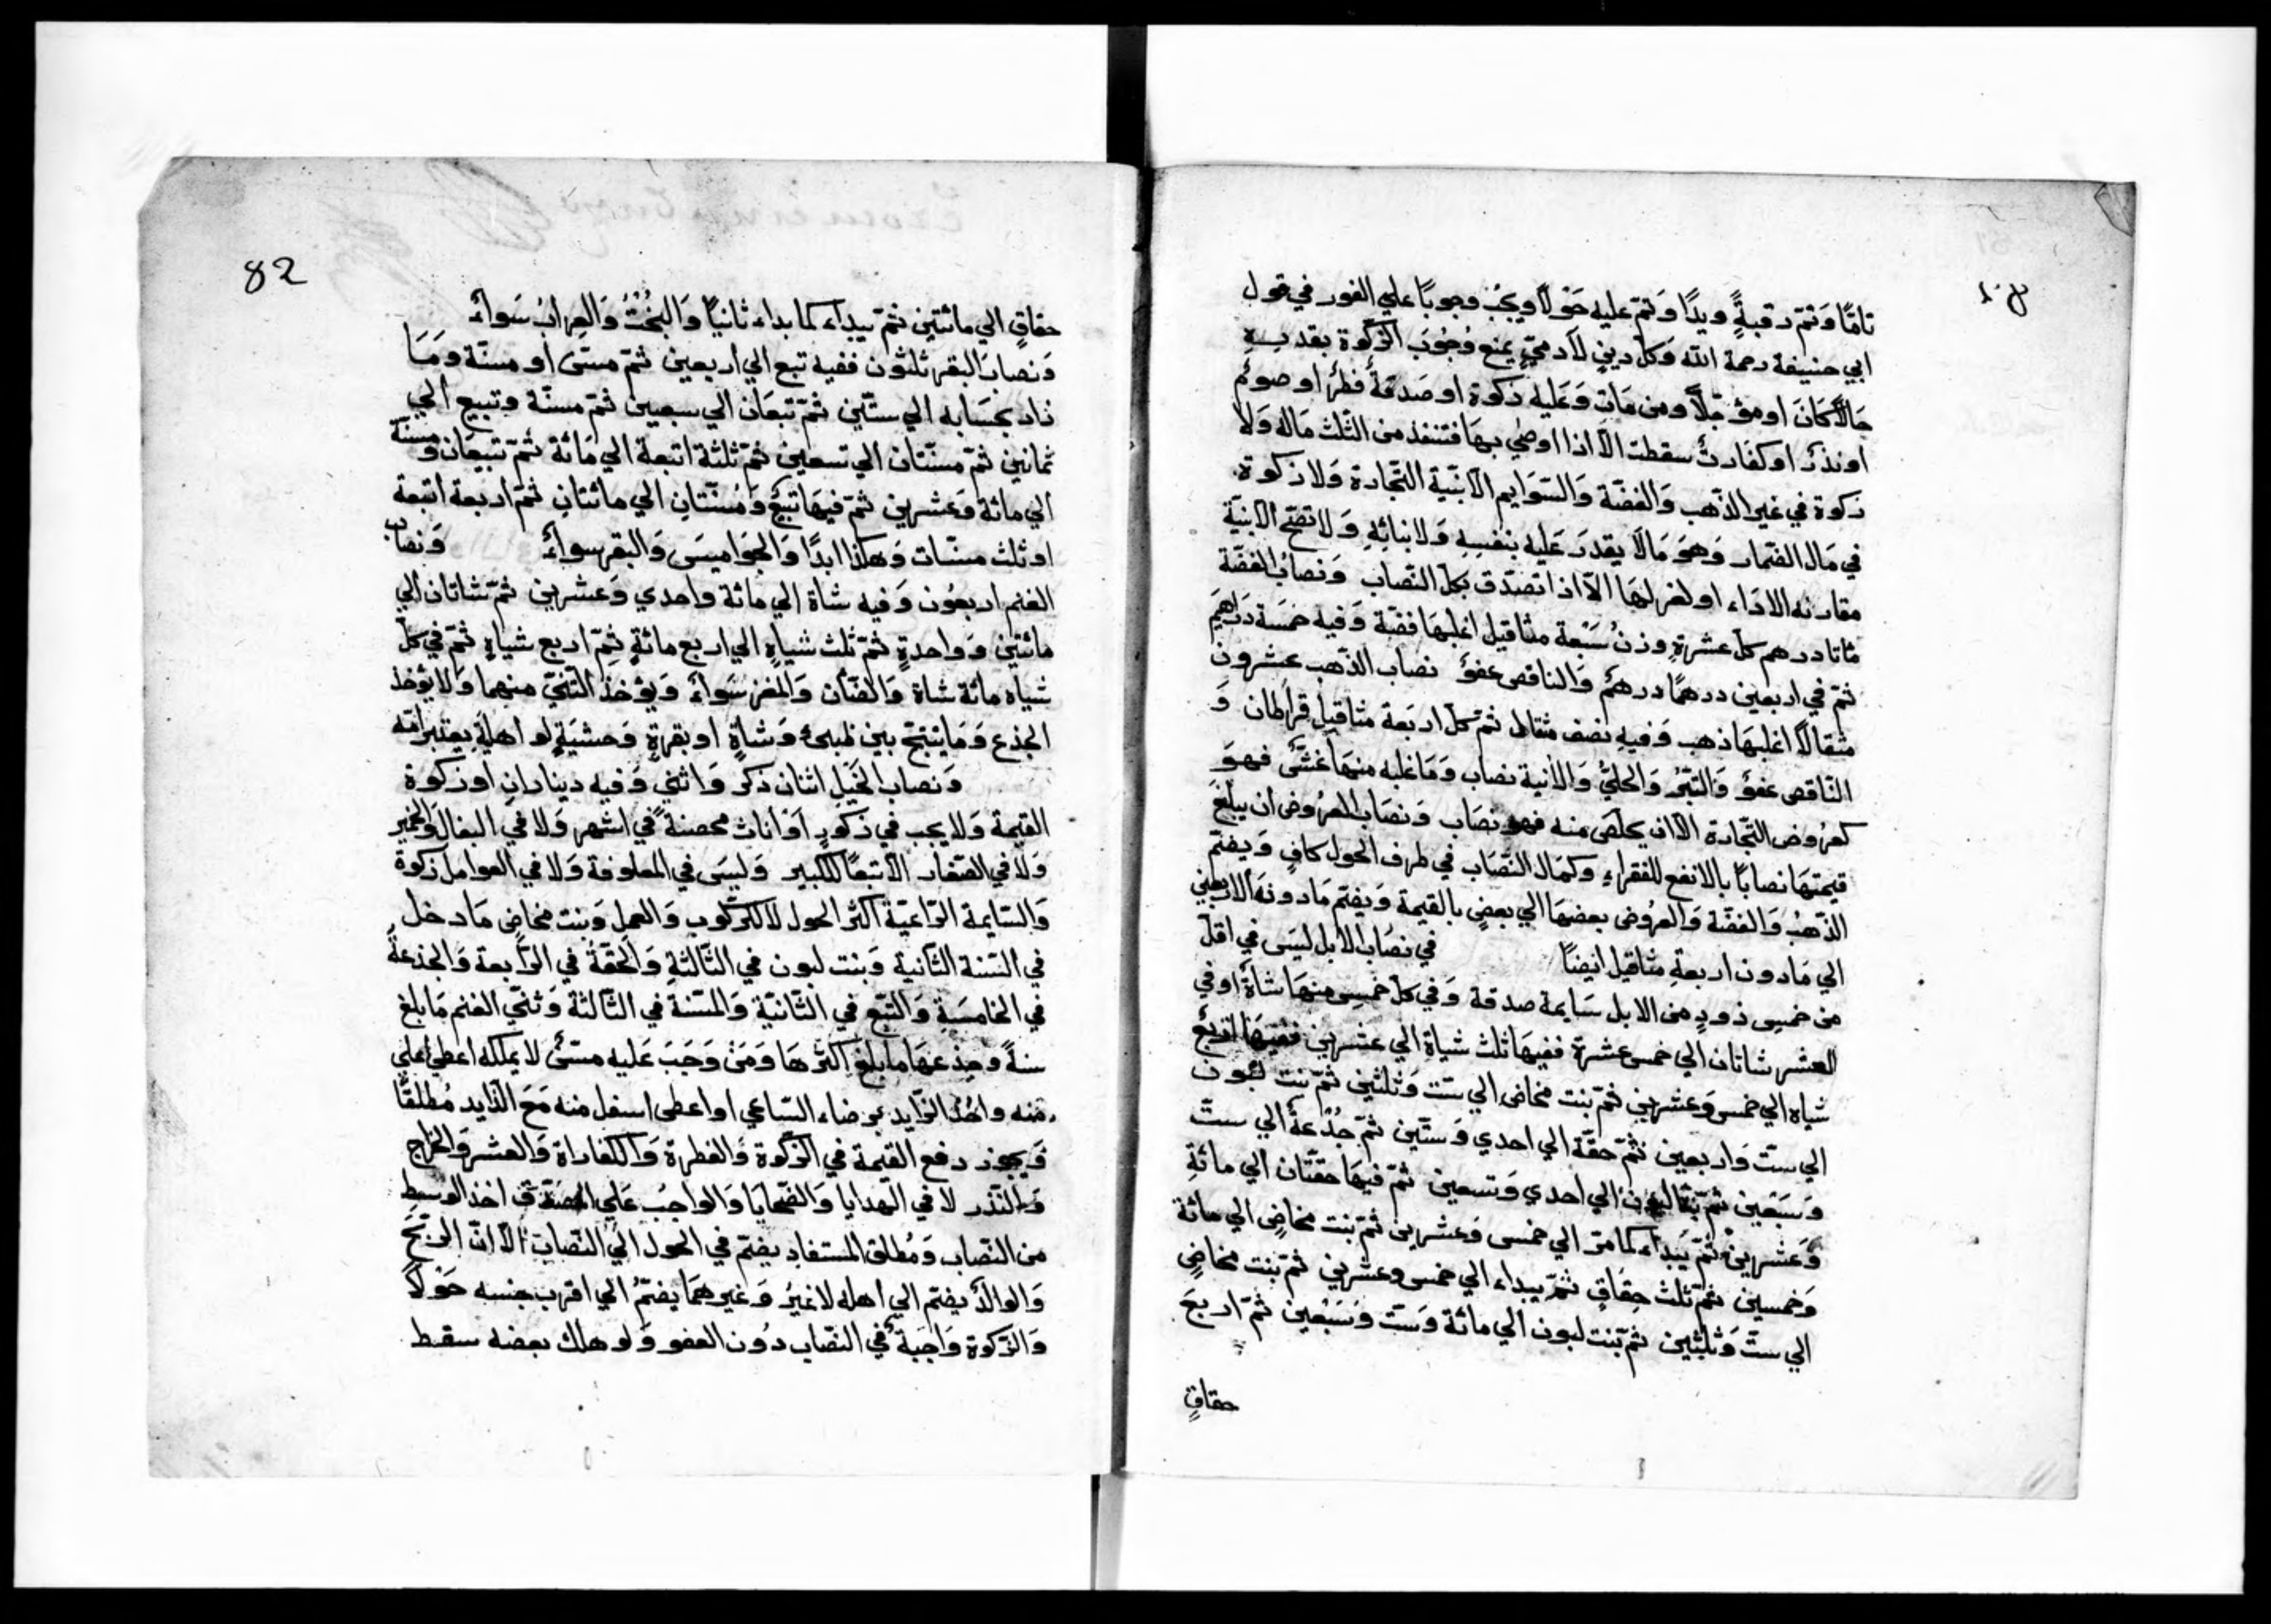 تامًّا وَتمّ رقبةٍ ويدًا وَتمّ عليه حَوْلًا ويجبُ وجوبًا علي الفور في قول
ابي حنيفة رحمة الله وَكلّ دينٍ لآدميّ يمنع وُجُوبَ الزّكوة بقدرِهِ
حَالًّا كانَ اومؤجّلًا ومن مَاتَ وَعَليه زكوة او صَدقة فطر او صوم
او نذر او كفارة سقطت الّا اذا اوصي بهَا فتنفذ من الثّلث مَاله وَلا
زكوة في غير الذّهب وَالفضّة وَالسّوايم الّا بنيّة التّجارة وَلا زكوة
في مَال الضّمار وَهوَ مَالا يقدرَ عَليه بنفسِهِ وَلا بنائِهِ وَلا تصّح الا بنيّة
مقارنه الاداء او لعزلهَا الّا اذا تصدّق بكلّ النّصاب وَنصابُ الفضّة
مائتا درهم كلّ عشرةٍ وزنُ سَبْعة مثاقيل اغلبهَا فضّة وَفيه خمسَة دَراهِم
ثمّ في اربعين درهمًا درهمٌ وَالناقص عفوٌ نصاب الذّهب عشرون
مثقالًا اغلبهَا ذهب وَفيهِ نصف مثقال ثمّ كلّ اربَعة مثاقيل قراطان وَ
النّاقص عفوٌ وَالتّبْرُ وَالحليُّ وَالآنية نصاب وَمَا غلبه منهَا غشّ فهوَ
كعرُوض التّجارة الّا ان يخلّص منه فهو نصَاب وَنصَاب العرُوض ان يبلغ
قيمتهَا نصابًا بالانفع للفقراءِ وكمال النّصَاب في طرف الحول كافٍ وَيضمّ
الذّهبُ وَالفضّة وَالعروُض بعضهَا الي بعضٍ بالقيمة وَيضمّ مَا دونه الاربعين
الي مَا دون اربعةِ مثاقيل ايضًا في نصَاب الابل ليسَ في اقلّ
من خمسِ ذودٍ من الابل سَايمة صدقة وَفي كلّ خمسٍ منهَا شاةٌ او في
العشر شاتان الي خمس عشرة ففيهَا ثلث شياة الي عشرين ففيهَا اربع
شياه الي خمس وَعشرين ثمّ بنت مخاض الي ستّ وَثلثين ثمّ بنت لبون
الي ستّ وَاربعين ثمّ حقّة الي احدي وَستّين ثمّ جُذْعة الي ستّ
وَسَبْعين ثمّ بنتا لبون الي احدي وَتسعين ثمّ فيهَا حقّتان الي مائةِ
وَعَشرين ثمّ يَبداء كمَا مرّ الي خمس وَعشرين ثمّ بنت مخاضٍ الي مائة
وَخمسين ثمّ ثلث حِقاقٍ ثمّ يبداء الي خمس وعشرين ثمّ بنت مخاضٍ
الي ستّ وَثلثين ثمّ بنت لبون الي مائة وَستّ وَسَبْعين ثمّ اربعَ
حقاقٍ
82
حقاقٍ الي مائتين ثمّ يبداء كما بداء ثانيًا وَالبُخْتُ وَالعِرابُ سَواءٌ
وَنصابُ البقر ثلثون ففيه تبع الي اربعين ثمّ مسنّ او مسنّة وَمَا
زاد بحسَابه الي ستّين ثمّ تبعَان الي سبعين ثمّ مسنّة وتبيع الي
ثمانين ثمّ مسنّتان الي تسعين ثمّ ثلثة اتبعة الي مَائة ثمّ تبيعَان وَمسنّة
الي مائة وَعشرين ثمّ فيهَا تبيع وَمُسنّتانِ الي مائتانِ ثمّ اربعة اتبعة
او ثلث مسنّات وَهكذا ابدًا وَالجَواميسَ وَالبقر سواءٌ وَنصاب
الغنم اربعُون وَفيه شاة الي مائة واحدي وَعشرين ثمّ شاتان الي
مائتين وَواحدةٍ ثمّ ثلث شياهٍ الي اربع مائةٍ ثمّ اربع شياهٍ ثمّ في كلّ
شياه مائة شاة وَالضّأن وَالمعز سَواءٌ وَيؤخذ الثّنيّ منهما وَلا يؤخذ
الجذع وَمَا ينتجّ بين ظبيء وَشاةٍ او بقرةٍ وَحشيَةٍ لو اهليَةِ يعتبر امّه
وَنصاب الخيل اثنان ذكر وَانثي وَفيه دينارانِ او زكوة
القيمة وَلا يجب في ذكورٍ اوْ اناث محصنةً في اشهر وَلا في البغال وَالحمير
وَلا في الصّغار الّا تبعًا للكبير وَليسَ في المعلوفة وَلا في العوامل زكوة
وَالسّايمة الرّاعيّة اكثر الحول لا للرّكوب وَالعمل وَبنت مخاض مَا دخل
في السّنة الثّانية وَبنت لبون في الثّالثةِ وَالحقّةُ في الرّابعة وَالجذعة
في الخامسَةِ وَالتّبع في الثّانيّة وَالمسّنة في الثّالثة وَثنيّ الغنم مَا بلغ
سنةً وجذعهَا ما بلغ اكثرهَا وَمَنْ وَجَبَ عَليه مسّنّ لا يملكه اعطي اعلي
منه واخذ الزّايد برضاء السّاعي او اعطى اسفل منه مَعَ الزّايد مُطلقًا
وَيجوز دفع القيمة في الزّكوة وَالفطرة وَالكفاراة وَالعشر وَالخراج
وَالنّذر لا في الهدايا وَالضّحايَا وَالواجبُ عَلي اخذ الوسط
من النّصاب وَمُطلق المستفاد يضمّ في الحول الي النّصاب الّا انّ الرّبحَ
وَالولد يضمّ الي اهله لا غيرُ وَغيرهمَا يضمّ الي اقرب جنسه حَوْلًا
وَالزّكوة وَاجبَةٌ في النّصاب دُون العفو وَلو هلك بعضه سقط